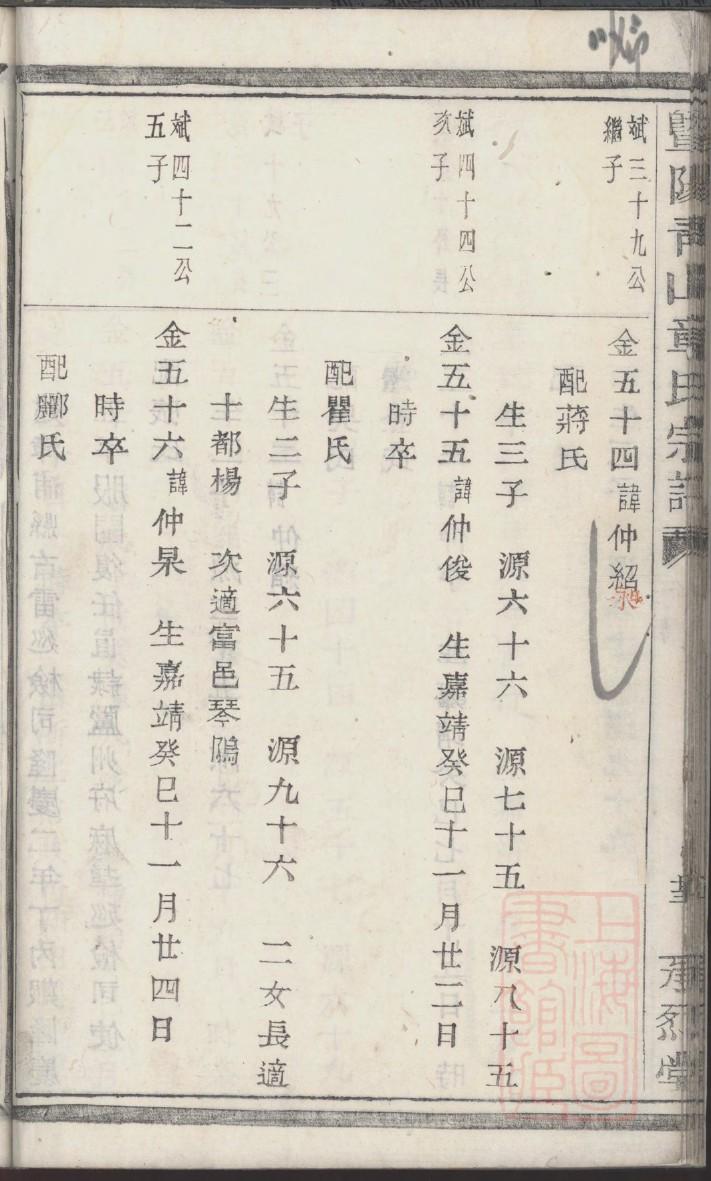 暨陽青山章氏宗譜
承烈堂
斌三十九公
繼子
金五十四諱仲紹
配蔣氏
生三子 源六十六 源七十五 源八十五
斌四十四公
亥子
金五十五諱仲俊 生嘉靖癸巳十一月廿二日
時卒
配瞿氏
生二子 源六十五 源九十六 二女長適
十都楊 次適富邑琴隖
斌四十二公
五子
金五十六諱仲杲 生嘉靖癸巳十一月廿四日
時卒
配酈氏
上海圖書館藏